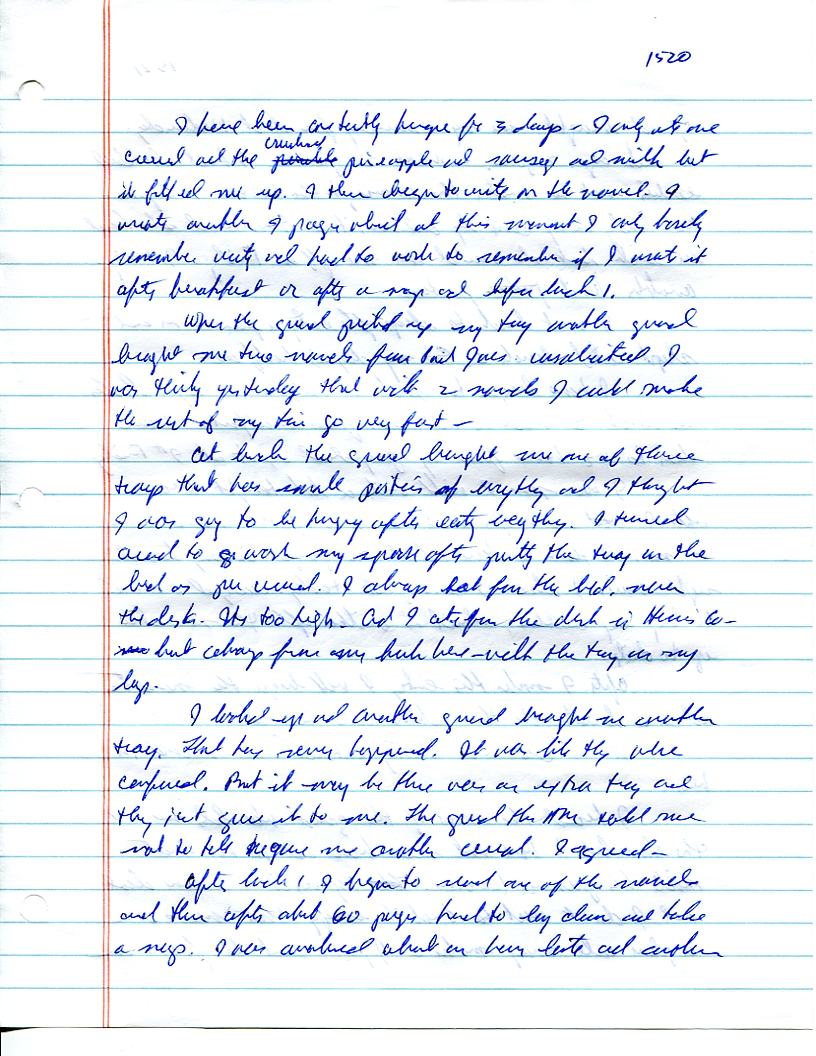 1520
I have been constantly hungry for 3 days - I only ate one
cereal and the crushed pineapple and sausage and milk but
it filled me up. I then began to write on the novel. I
wrote another 7 pages which at this moment I only barely
remember writing and had to work to remember if I wrote it
after breakfast or after a nap and before lunch 1.
When the guard picked up my tray another guard
brought me two novels from unsolicited I
was thinking yesterday that with 2 novels I could make
the rest of my time go very fast -
At lunch the guard brought me one of those
trays that has small portions of everything and I thought
I was going to be hungry after eating everything. I turned
around to go wash my spork after putting the tray on the
bed as per usual. I always eat from the bed, never
the desk. It's too high. And I ate from the desk in
but always from my bunk here - with the tray on my
lap.
I looked up and another guard brought me another
tray. That has never happened. It was like they were
confused. But it may be there was an extra tray and
they just gave it to me. The guard the told me
not to tell he gave me another cereal. I agreed -
After lunch 1 I began to read one of the novels
and then after about 60 pages had to lay down and take
a nap. I was awakened about an hour later and another